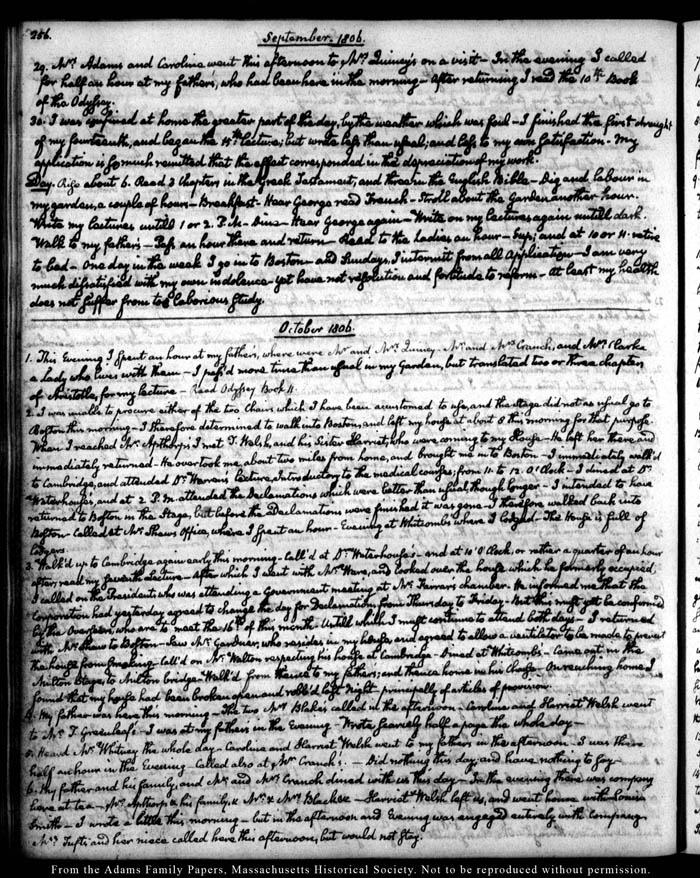 256.
September. 1806.
29. Mrs. Adams and Caroline went this afternoon to Mr. Quincy's on a visit - In the evening I called
for half an hour at my father's, who had been here in the morning - After returning I read the 10th Book
of the Odyssey.
30. I was confined at home the greater part of the day, by the weather which was foul - I finished the first draught
of my fourteenth, and began the 15th lecture; but wrote less than usual; and less to my own satisfaction - My
application is so much remitted that the effect corresponded in the depreciation of my work.
Day. Rise about 6. Read 3 Chapters in the Greek Testament, and three in the English Bible - Dig and labour in
my garden, a couple of hours - Breakfast - Hear George read French - Stroll about the Garden another hour.
Write my lectures untill 1 or 2. P.M. - Dine - Hear George again - Write on my lectures again untill dark.
Walk to my father's - Pass an hour there and return - Read to the Ladies an hour - Sup; and at 10 or 11. retire
to bed - One day in the week I go in to Boston - and Sundays, I intermit from all Application - I am very
much dissatisfied with my own indolence - yet have not resolution and fortitude to reform - At least my health
does not suffer from too laborious study.
October 1806.
1. This Evening I spent an hour at my father's, where were Mr. and Mrs. Quincy - Mr. and Mrs. Cranch, and Mrs. Clarke
a Lady who lives with them - I pass'd more time than usual in my Garden, but translated two or three chapters
of Aristotle, for my lecture - Read Odyssey Book 11.
2. I was unable to procure either of the two Chairs which I have been accustomed to use, and the Stage did not as usual go to
Boston this morning - I therefore determined to walk into Boston, and left my house at about 8 this morning for that purpose.
When I reached Mr. Apthorp's I met T. Welsh and his Sister Harriet, who were coming to my House - He left her there and
immediately returned - He overtook me about two miles from home, and brought me in to Boston - I immediately walk'd
to Cambridge, and attended Dr. Warren's lecture, Introductory to the medical course; from 11. to 12. O'Clock - I dined at Dr.
Waterhouse's, and at 2. P.M. attended the Declamations which were better than usual though longer - I intended to have
returned to Boston in the Stage, but before the Declamations were finished it was gone - I therefore walked back into
Boston - Called at Mr. Shaw's Office, where I spent an hour - Evening at Whitcomb's where I lodged - The House is full of
Lodgers.
3. Walk'd up to Cambridge again early this morning - Call'd at Dr. Waterhouse's - and at 10 O'Clock, or rather a quarter of an hour
after, read my seventh Lecture - After which I went with Mr. Ware, and looked over the house which he formerly occupied;
I called on the President, who was attending a Government meeting at Mr. Farrar's chamber. He informed me that the
Corporation had yesterday agreed to change the day for Declamation, from Thursday to Friday - But this must yet be confirmed
by the Overseers, who are to meet the 16th of this month. Untill which I must continue to attend both days - I returned
with Mr. Shaw to Boston - Saw Mr. Gardner, who resides in my house, and agreed to allow a ventilator to be made to prevent
the house from smoking - Call'd on Mr. Walton respecting his house at Cambridge - Dined at Whitcomb's - Came out in the
Milton Stage, to Milton bridge - Walk'd from thence to my father's; and thence home in his Chaise - On reaching home I
found that my house had been broken open and robb'd last Night - principally of articles of provision.
4. My father was here this morning - The two Mrs. Blakes called in the afternoon - Caroline and Harriet Welsh went
to Mr. T. Greenleaf's - I was at my father's in the Evening - Wrote scarcely half a page the whole day -
5. Heard Mr. Whitney the whole day - Caroline and Harriet Welsh went to my father's in the afternoon - I was there
half an hour in the Evening - Called also at Mr. Cranch's. - Did nothing this day, and have nothing to say -
6. My father and his family, and Mr. and Mrs. Cranch dined with us this day - In the evening there was company
here at tea - Mr. Apthorp & his family, & Mr. & Mrs. Black &c - Harriet Welsh left us, and went home with Louisa
Smith - I wrote a little this morning - but in the afternoon and Evening was engaged entirely with company.
Mrs. Tufts and her niece called here this afternoon, but would not stay.
From the Adams Family Papers, Massachusetts Historical Society. Not to be reproduced without permission.